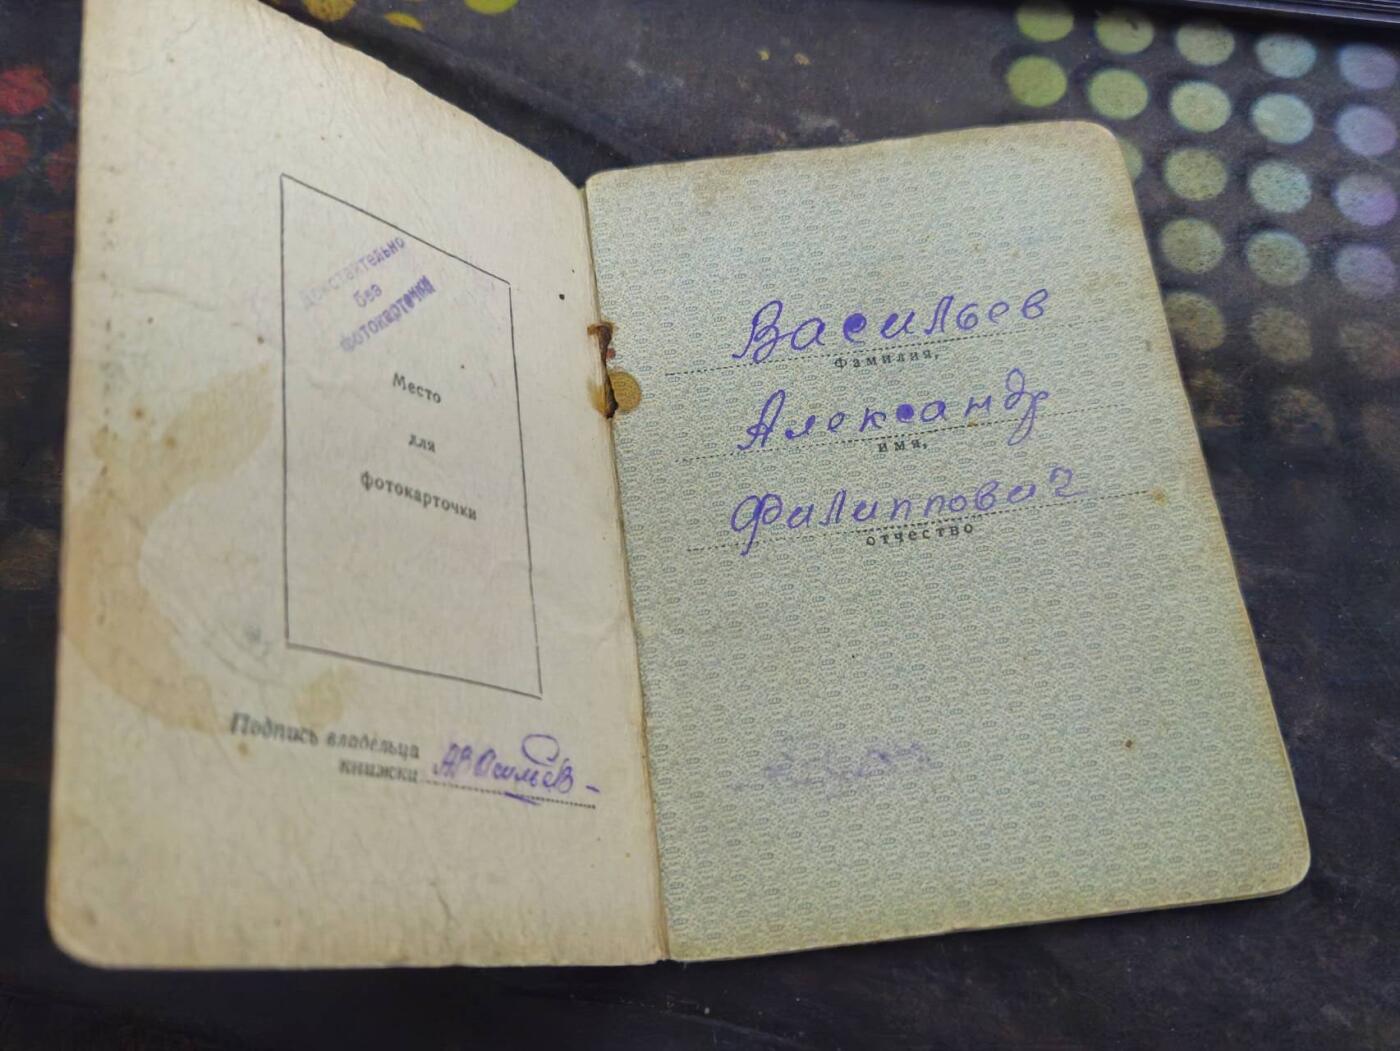 Действительно
без
фотокарточки
Место
для
фотокарточки
Подпись владельца
книжки АВасильев
Васильев
фамилия,
Александр
имя,
Филиппович
отчество